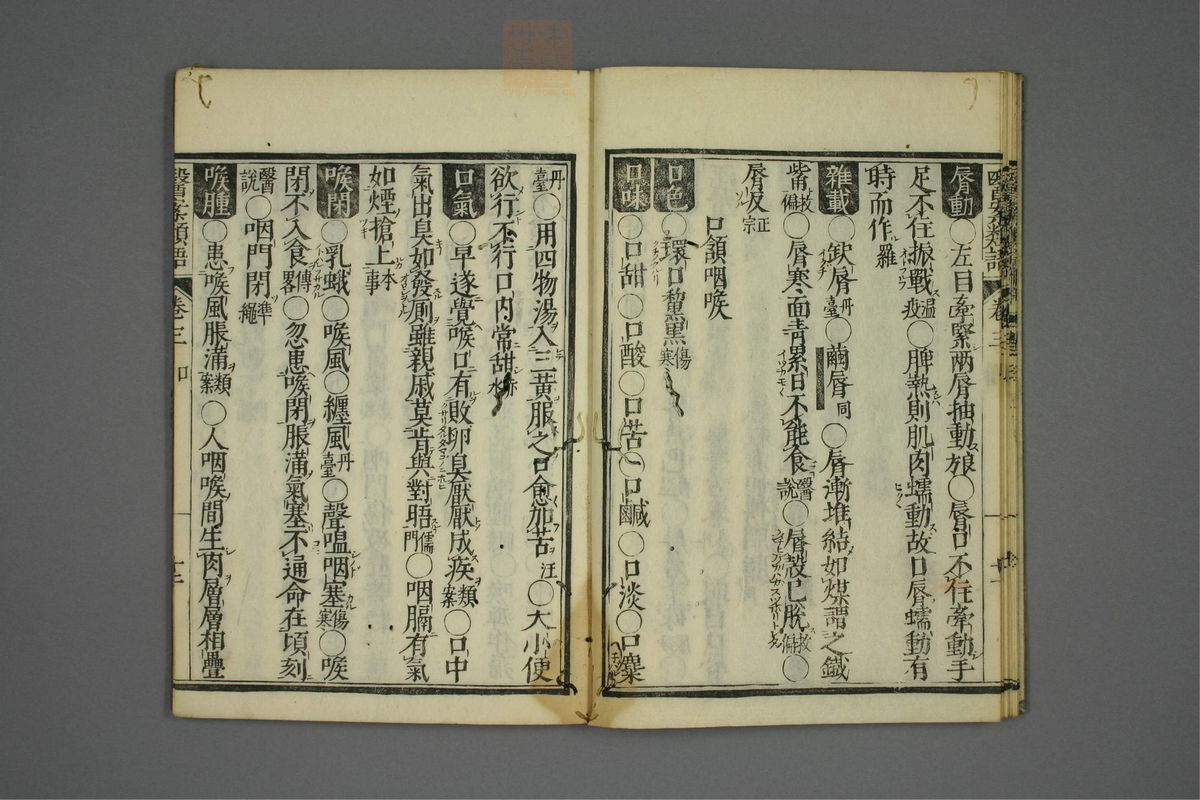 脣動○左目牽緊兩脣抽動 娘○脣口不住牽動手
足不住振戰 溫疫○脾熱則肌肉蠕動故口脣蠕動有
時而作 羅
雜載○欽脣 丹臺○繭脣 同○脣漸堆結如煤謂之鐵
觜 救偏○脣寒面青累日不能食 醫說○脣殼已脫 救偏○
脣反 正宗
口頷咽喉
口色○環口黧黑 傷寒
口味○口甜○口酸○口苦○口鹹○口淡○口麋
丹臺○用四物湯入三黃服之口愈加苦 汪○大小便
欲行不行口內常甜 赤水
口氣○早遂覺喉口有敗卵臭厭厭成疾 類案○口中
氣出臭如發廁雖親戚莫肯與對語 儒門○咽膈有氣
如煙搶上 本事
喉閉○乳蛾○喉風○纏風 丹臺○聲嗢咽塞 傷寒○喉
閉不入食 傳畧○忽患喉閉脹滿氣塞不通命在頃刻
醫說○咽門閉 準繩
喉腫○患喉風脹滿 類案○人咽喉間生肉層層相疊
醫學類語 卷三